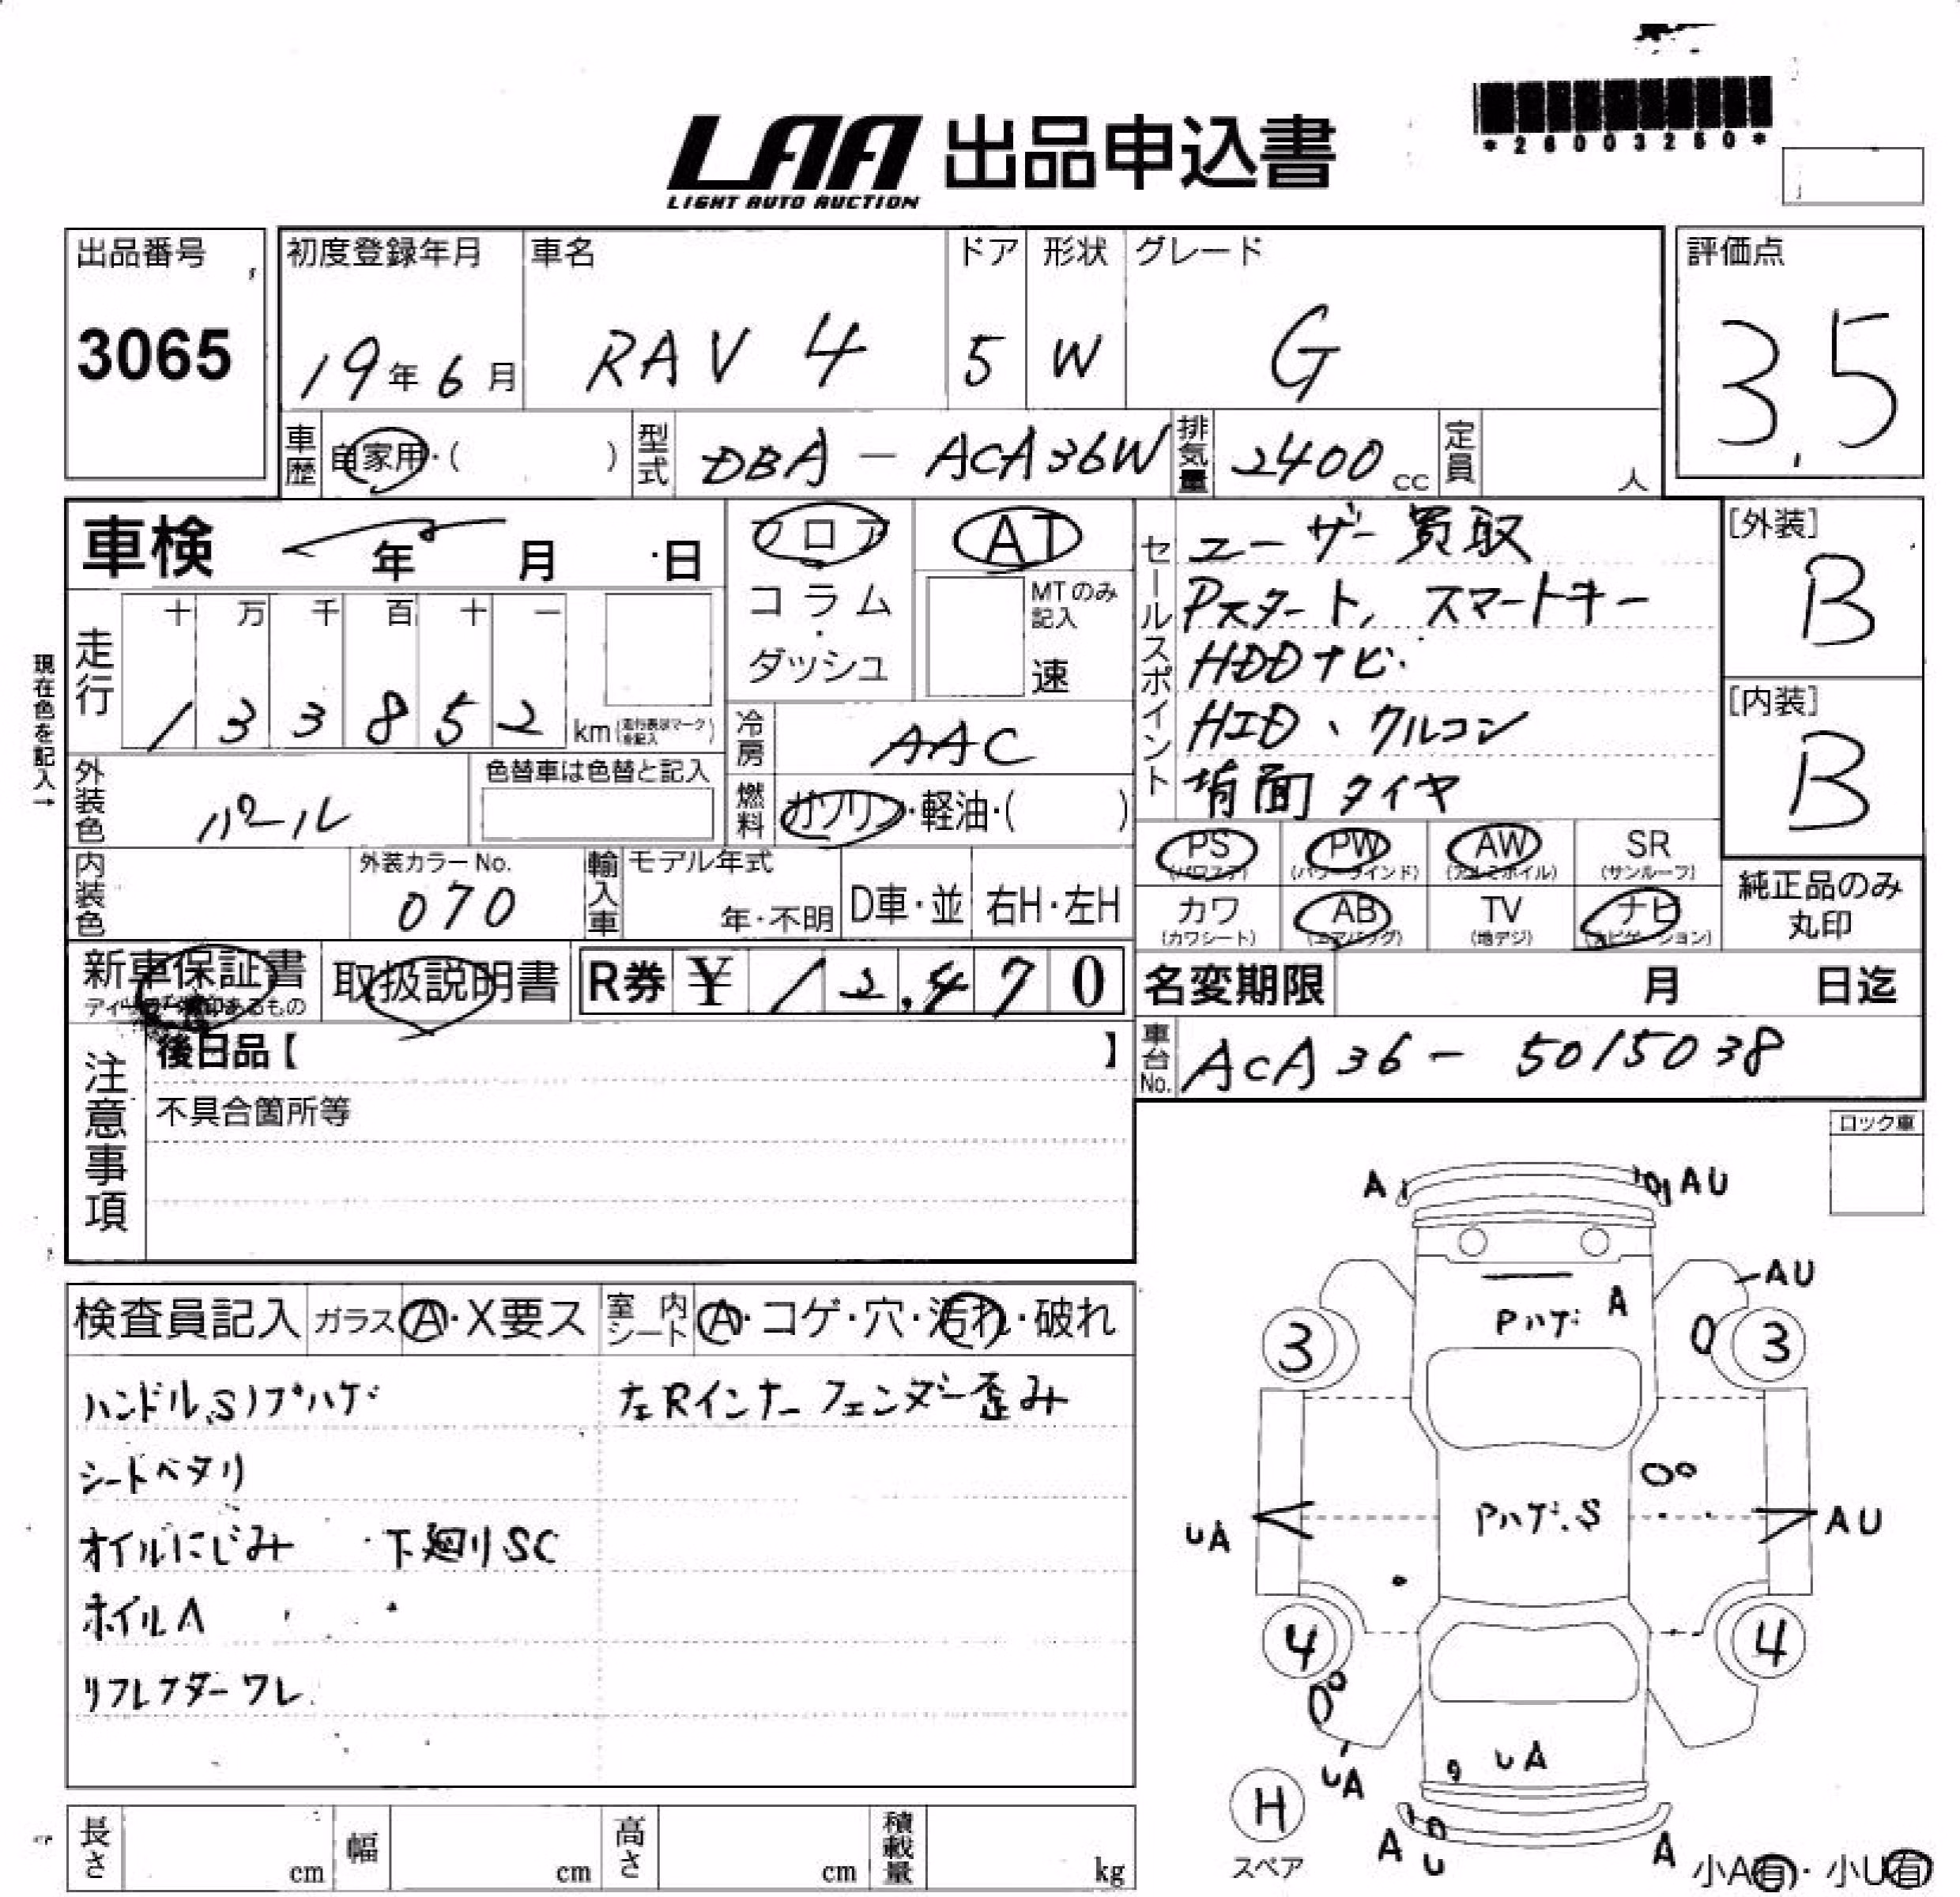 *26003250*
LAA 出品申込書
LIGHT AUTO AUCTION
出品番号 初度登録年月 車名 ドア 形状 グレード 評価点
3065 19年6月 RAV4 5 W G 3.5
車歴 自家用・( ) 型式 DBA-ACA36W 排気量 2400cc 定員 人
車検 年 月 日 フロア AT
コラム・ダッシュ MTのみ記入 速
現在色を記入→
走行 十 万 千 百 十 一
133852 km
冷房 AAC
外装色 パール 色替車は色替と記入
燃料 ガソリン・軽油・( )
内装色 外装カラーNo. 070 輸入車 モデル年式 年・不明 D車・並 右H・左H
セールスポイント
ユーザー買取
Pスタート、スマートキー
HDDナビ
HID、クルコン
背面タイヤ
[外装] B
[内装] B
PS(パワステ) PW(パワーウインド) AW(アルミホイル) SR(サンルーフ)
カワ(カワシート) AB(エアバッグ) TV(地デジ) ナビ(ナビゲーション)
純正品のみ丸印
新車保証書 取扱説明書 R券 ¥12,470 名変期限 月 日迄
車台No. ACA36-5015038
注意事項
後日品【 】
不具合箇所等
ロック車
検査員記入 ガラス A・X要ス 室内シート A・コゲ・穴・汚れ・破れ
ハンドル、Sノブハゲ 左Rインナーフェンダー歪み
シートヘタリ
オイルにじみ ・下廻りSC
ホイルA
リフレクターワレ
A AU
AU
Pハゲ A
3 3
Pハゲ.S
UA AU
4 4
UA
UA
H
スペア
A U A
小A有・小U有
長さ cm 幅 cm 高さ cm 積載量 kg